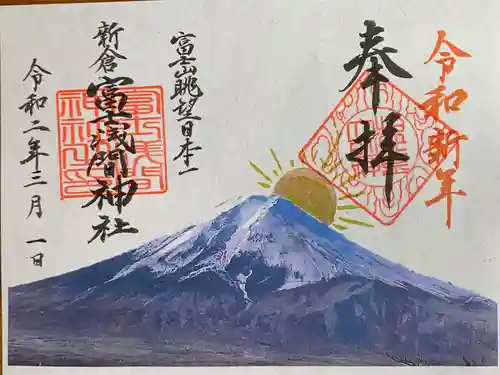 令和新年
奉拝
富士山眺望日本一
新倉富士浅間神社
令和二年三月一日